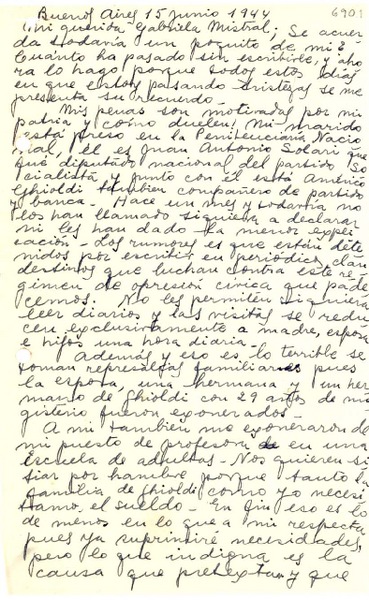 Buenos Aires 15 junio 1944
6901
Mi querida Gabriela Mistral; Se acuer
da todavía un poquito de mí?
Cuánto ha pasado sin escribirle, y aho
ra lo hago porque todos estos días
en que estoy pasando tristezas se me
presenta su recuerdo.
Mis penas son motivadas por mi
patria y como duelen! Mi marido
está preso en la Penitenciaría Nacio
nal, él es Juan Antonio Solari que
fué diputado nacional del partido So
cialista y junto con él está Américo
Ghioldi tambien compañero de partido
y banca. Hace un mes y todavía no
los han llamado siquiera a declarar
ni les han dado la menor expli
cación - Los rumores es que están dete
nidos por escribir en periódicos clan
destinos que luchan contra este ré
gimen de opresión cívica que pade
cemos. No les permiten siquiera
leer diarios y las visitas se redu
cen exclusivamente a madre, esposa
e hijos una hora diaria.-
Además y eso es lo terrible se
toman represalias familiares pues
la esposa, una hermana y un her
mano de Ghioldi con 29 años de ma
gisterio fueron exonerados.-
A mí tambien me exoneraron de
mi puesto de profesora de en una
Escuela de adultas.- Nos quieren si
tiar por hambre porque tanto la
familia de Ghioldi como yo necesi
tamos el sueldo.- En fin eso es lo
de menos en lo que a mí respecta
pues ya suprimiré necesidades,
pero lo que indigna es la
causa que pretextan y que